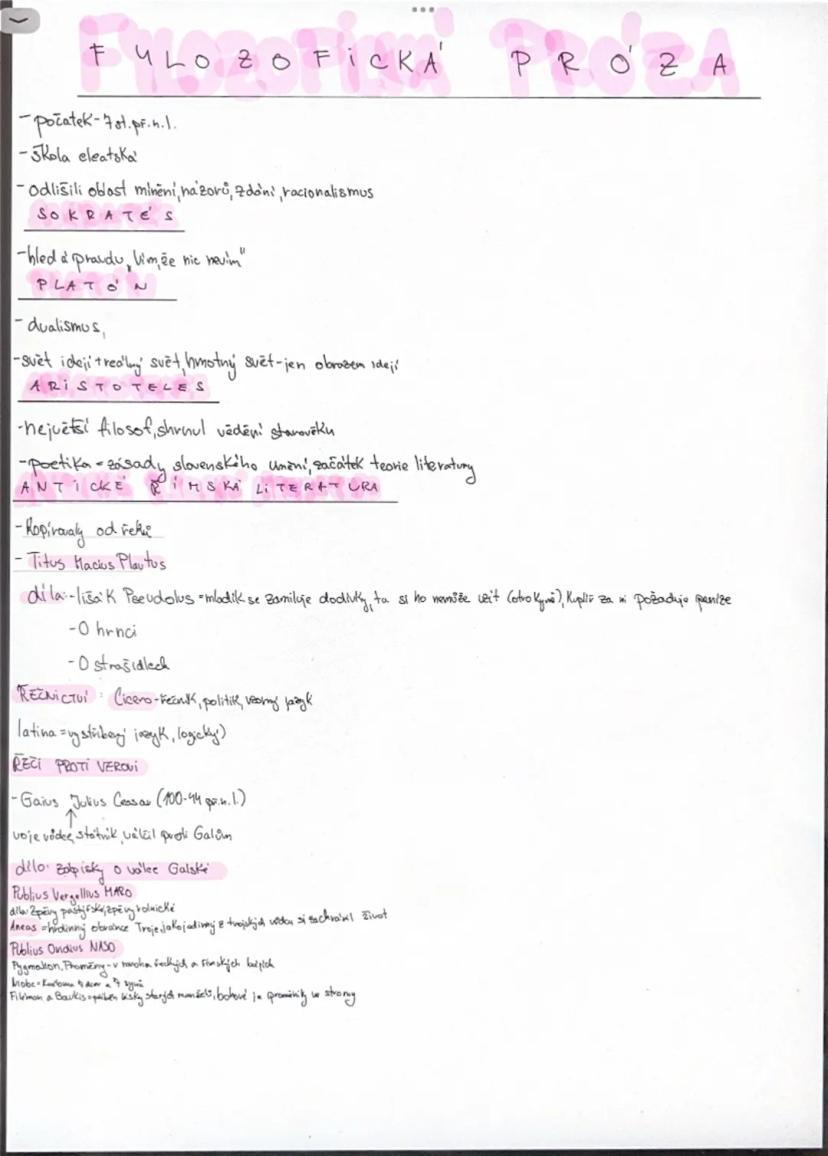 FYLOZOFICKÁ PRÓZA
-počatek-7 st.př.n.l.
-škola eleatská
-odlišili oblast mínění, názorů, zdání, racionalismus
SOKRATÉS
-hledá pravdu „Vím, že nic nevím"
PLATÓN
-dualismus,
-svět idejí+reálný svět, hmotný svět-jen obrazem idejí
ARISTOTELES
-největší filosof, shrnul vědění starověku
-poetika=zásady slovenského umění, začátek teorie literatury
ANTICKÉ ŘÍMSKÁ LITERATURA
-kopírovaly od řeků
-Titus Macius Plautus
díla:-lišák Pseudolus=mladík se zamiluje do dívky, ta si ho nemůže vzít (otrokyně), kuplíř za ni požaduje peníze
-O hrnci
-O strašidlech
ŘEČNICTVÍ: Cicero-řečník, politik, vzorný jazyk
latina=vystříbený jazyk, logický)
ŘEČI PROTI VEROVI
-Gaius Julius Ceasar (100-44 př.n.l.)
voje vůdce, státník, válčil proti Galům
dílo: zápisky o válce Galské
Publius Vergilius MARO
díla: Zpěvy pastýřské, zpěvy rolnické
Aneas=hrdinný obránce Troje, jako jediný z trojských vůdců si zachránil život
Publius Ovidius NASO
Pygmalion, Proměny-v řeckých a římských bájích
Niobe= 7 dcer a 7 synů
Filémon a Baukis=příběh lásky starých manželů, bohové je proměnily ve stromy